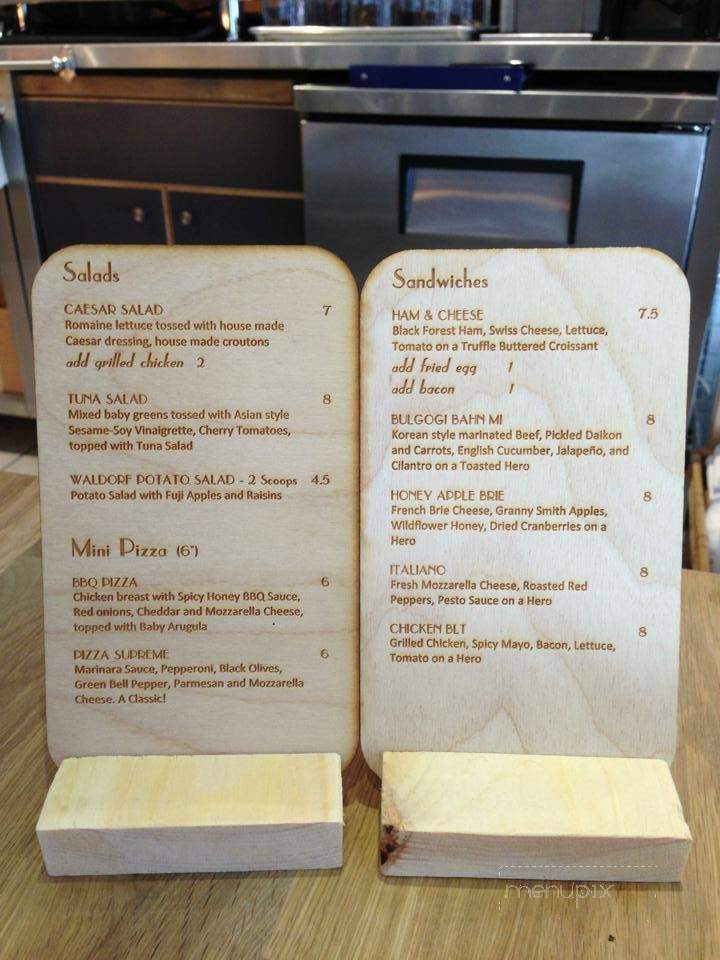 Salads
CAESAR SALAD 7
Romaine lettuce tossed with house made
Caesar dressing, house made croutons
add grilled chicken 2
TUNA SALAD 8
Mixed baby greens tossed with Asian style
Sesame-Soy Vinaigrette, Cherry Tomatoes,
topped with Tuna Salad
WALDORF POTATO SALAD - 2 Scoops 4.5
Potato Salad with Fuji Apples and Raisins
Mini Pizza (6")
BBQ PIZZA 6
Chicken breast with Spicy Honey BBQ Sauce,
Red onions, Cheddar and Mozzarella Cheese,
topped with Baby Arugula
PIZZA SUPREME 6
Marinara Sauce, Pepperoni, Black Olives,
Green Bell Pepper, Parmesan and Mozzarella
Cheese. A Classic!
Sandwiches
HAM & CHEESE 7.5
Black Forest Ham, Swiss Cheese, Lettuce,
Tomato on a Truffle Buttered Croissant
add fried egg 1
add bacon 1
BULGOGI BAHN MI 8
Korean style marinated Beef, Pickled Daikon
and Carrots, English Cucumber, Jalapeño, and
Cilantro on a Toasted Hero
HONEY APPLE BRIE 8
French Brie Cheese, Granny Smith Apples,
Wildflower Honey, Dried Cranberries on a
Hero
ITALIANO 8
Fresh Mozzarella Cheese, Roasted Red
Peppers, Pesto Sauce on a Hero
CHICKEN BLT 8
Grilled Chicken, Spicy Mayo, Bacon, Lettuce,
Tomato on a Hero
menupix